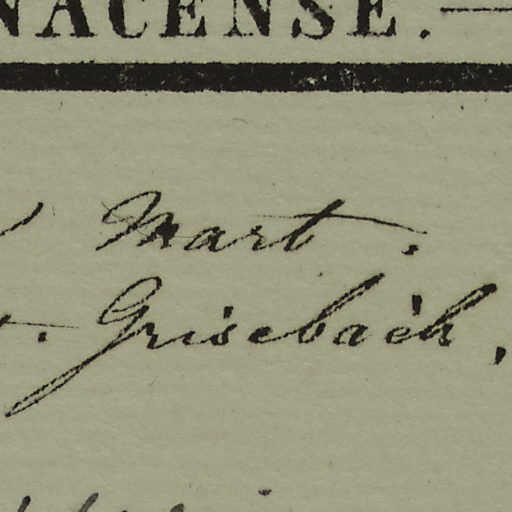 NACENSE.—
Mart.
Grisebach,